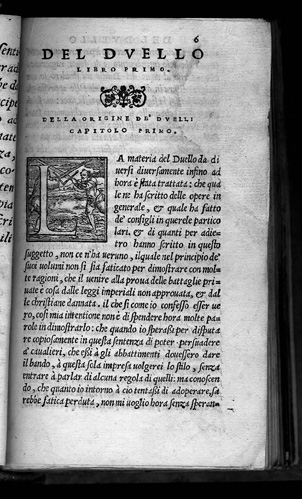 6
DEL DVELLO
LIBRO PRIMO.
DELLA ORIGINE DE' DVELLI
CAPITOLO PRIMO.
LA materia del Duello da di
uersi diuersamente infino ad
hora è stata trattata: che qua
le ne ha scritto delle opere in
generale, & quale ha fatto
de' consigli in querele partico
lari. & di quanti per adie-
tro hanno scritto in questo
suggetto, non ce n'ha ueruno, ilquale nel principio de'
suoi uolumi non si sia faticato per dimostrare con mol-
te ragioni, che il uenire alla proua delle battaglie priua-
te è cosa dalle leggi imperiali non approuata, & dal
le christiane dannata. il che si come io confesso esser ue
ro, cosi mia intentione non è di spendere hora molte pa
role in dimostrarlo: che quando io sperassi per disputa
re copiosamente in questa sentenza di poter persuadere
a' caualieri, che essi à gli abbattimenti douessero dare
il bando, à questa sola impresa uolgerei lo stilo, senza
entrare à parlar di alcuna regola di quelli: ma conoscen
do, che quanto io intorno à cio tentassi di adoperare, sa
rebbe fatica perduta, non mi uoglio hora senza speran-